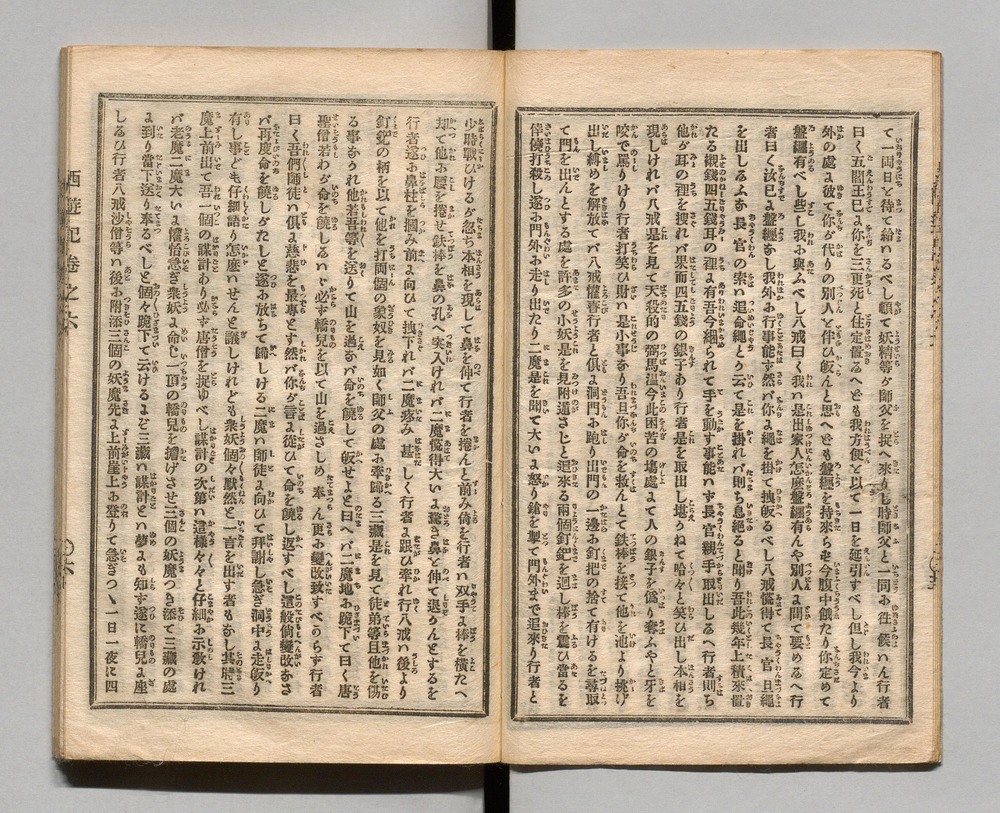 て一両日と待て給ハるべし頓て妖精等が師父を捉へ來りし時師父と一同お往て候ハん行者
曰く五閻王已よ你を三更死と住定置るへども我方便と以て一日を延引すべし但し我今より
外の處よ彼て你が代りの別人と伴ひ皈んと思へども盤纒を持來らず今腹中餓たり你定めて
盤纒有べし些し我お與ふべし八戒曰く我ハ是出家人怎麼盤纒有んや別人よ問て要め給へ行
者曰く汝已よ盤纒なし我外お行事能ず然バ你よ繩を掛て拽皈るべし八戒慌得て長官旦繩
を出し給ふな長官の索ハ追命繩とり云て是を掛れバ則ち息絶ると聞り吾此幾年上積來置
たる襯錢四五錢耳の裡よ有吾今縛られて手を動す事能ハず長官親手取出し給へ行者則ち
他が耳の裡を搜れバ果而四五錢の銀子あり行者是を取出し堪りねて哈々と笑ひ出し本相を
現しけれバ八戒是を見て天殺的の弼馬温今此困苦の場處よて人の銀子を僞り奪ふやと牙を
咬で罵りけり行者打笑ひ財ハ是小事なり吾旦你が命を救んとて鉄棒を接て他を池より挑げ
出し縛めを解放てバ八戒懽喜行者と倶よ洞門お跑り出門の一邊お釘把の捨て有けるを尋取
て門を出んとする處を許多の小妖是を見附遁さじと追來る兩個釘鈀を迴し棒を震ひ當るを
倖僥打殺し遂お門外お走り出たり二魔是を聞て大いよ怒り鎗を挈て門外まで追來り行者と
少時戰ひけるが忽ち本相を現して鼻を伸て行者を捲んと前み倚を行者ハ双手よ棒を橫たへ
却て他お腰を捲せ鉄棒を鼻の孔へ突入けれバ二魔慌得大いよ驚き鼻と伸て退らんとするを
行者遂お鼻柱を掴み前よ向ひて拽下れバ二魔疼み甚しく行者よ跟ひ牽れ行八戒ハ後より
釘鈀の柄を以て他を打兩個の象奴を見る如く師父の處お牽歸る三藏是を見て徒弟等且他を傷
る事なかれ他若吾等を送りて山を過なバ命を饒して皈せよと曰へバ二魔地お跪下て曰く唐
聖僧若わが命を饒し給ハヾ必ず轎兒を以て山を過さしめ奉ん更お變改致すべからず行者
曰く吾們師徒ハ倶よ慈悲を最專とす然バ你が言よ從ひて命を饒し返すべし這般倘變改なさ
バ再度命を饒しがたしと遂お放ちて歸しける二魔ハ師徒よ向ひて拜謝し急ぎ洞中よ走皈り
有し事ども仔細語り怎麼ハせんと議しけれども衆妖個々默然と一言を出す者もなし其時三
魔上前出て吾一個の謀計あり必ず唐僧を捉ゆべし謀計の次第ハ這種々々と仔細お示教けれ
バ老魔二魔大いよ懽怡急ぎ衆妖よ命じ一頂の轎兒を擡げさせ三個の妖魔つき添て三藏の處
よ到り當下送り奉るべしと個々跪下て云けるよぞ三藏ハ謀計とハ夢よも知ず遂に轎兒よ座
し給ひ行者八戒沙僧等ハ後お附添三個の妖魔先よ上前崖上お登りて急ぎつヽ一日一夜に四
西遊記卷之六
〇六